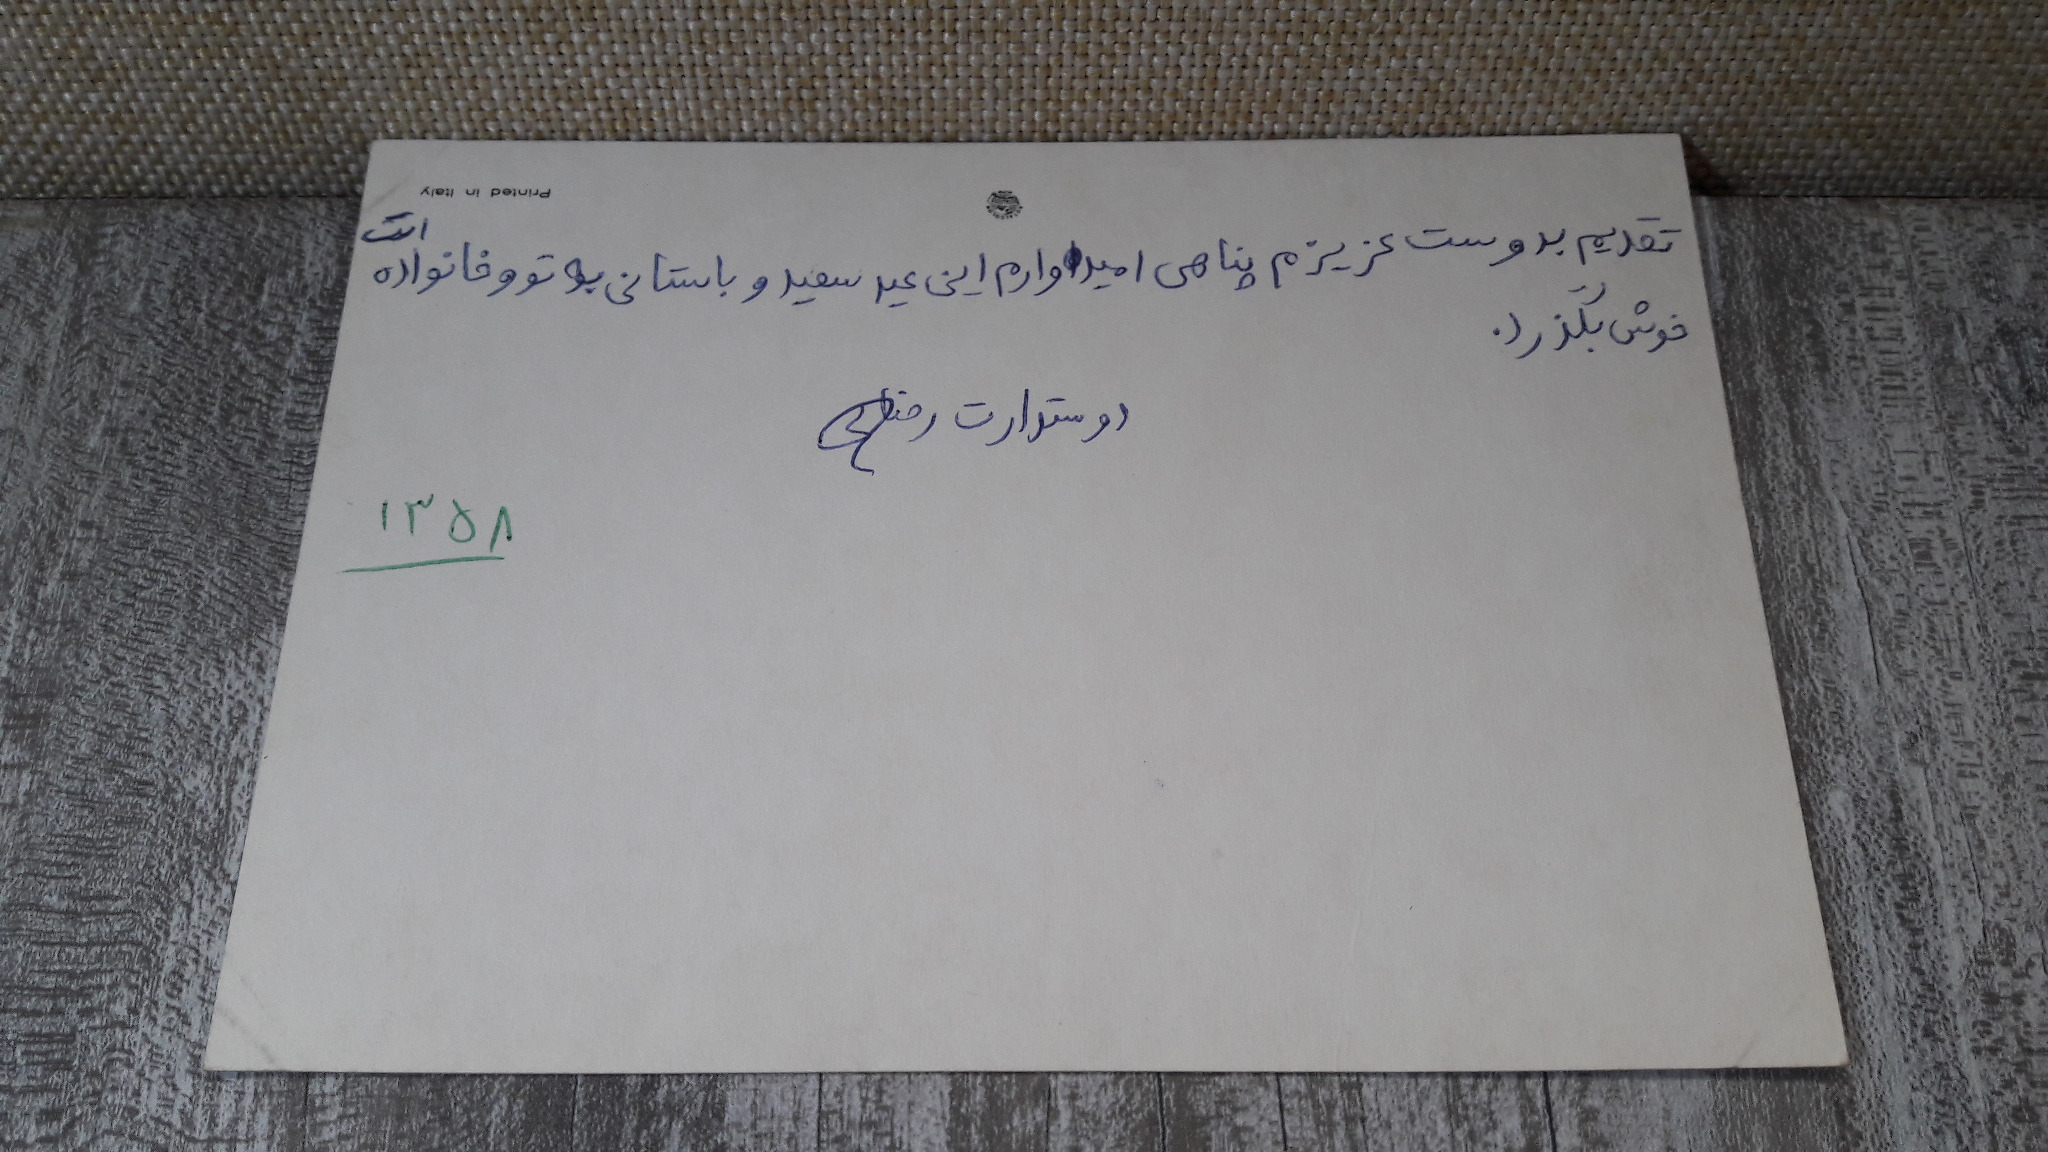 Printed in Italy
تقدیم بدوست عزیزم پناهی امیدوارم این عید سعید و باستانی به تو و خانواده ات
خوش بگذرد.
دوستدارت
۱۳۵۸